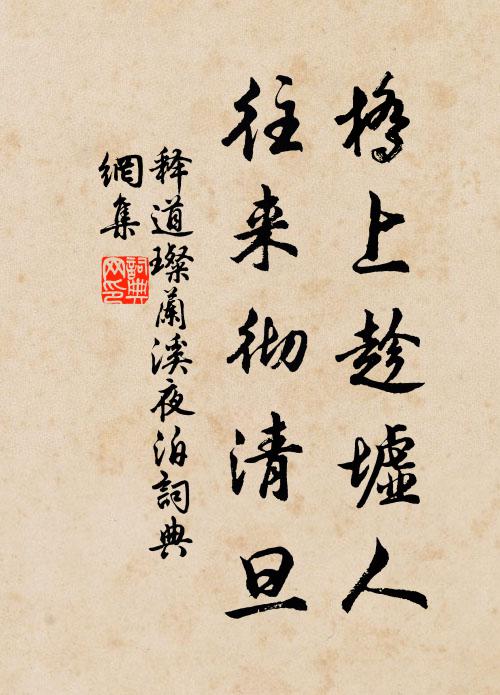 橋上趁墟人
往来彻清旦
释道璨蘭溪夜泊詞典
網集
詞典網印